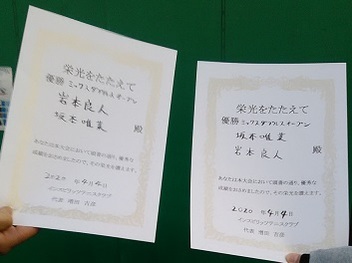 栄光をたたえて
優勝 ミックスダブルスオープン
岩本良人
坂本唯菜
殿
あなたは本大会において頭書の通り、優秀な
成績をおさめましたので、その栄光を讃えます。
2020 年 4 月 4 日
インスピリッツテニスクラブ
代表 増田 吉彦
栄光をたたえて
優勝 ミックスダブルスオープン
坂本唯菜
岩本良人
殿
あなたは本大会において頭書の通り、優秀な
成績をおさめましたので、その栄光を讃えます。
2020 年 4 月 4 日
インスピリッツテニスクラブ
代表 増田 吉彦